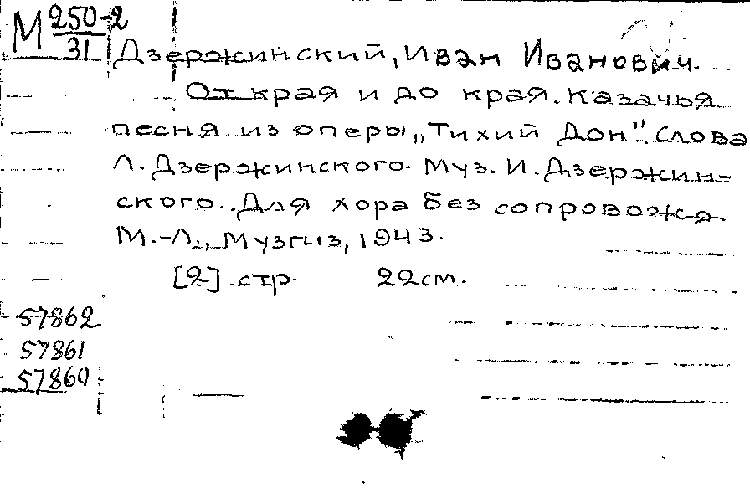 М 250-2
31
Дзержинский, Иван Иванович.
От края и до края. Казачья
песня из оперы „Тихий Дон". Слова
Л. Дзержинского. Муз. И. Дзержин-
ского. Для хора без сопровожд.
М.-Л., Музгиз, 1943.
[2] стр 22см.
57862
57861
57860